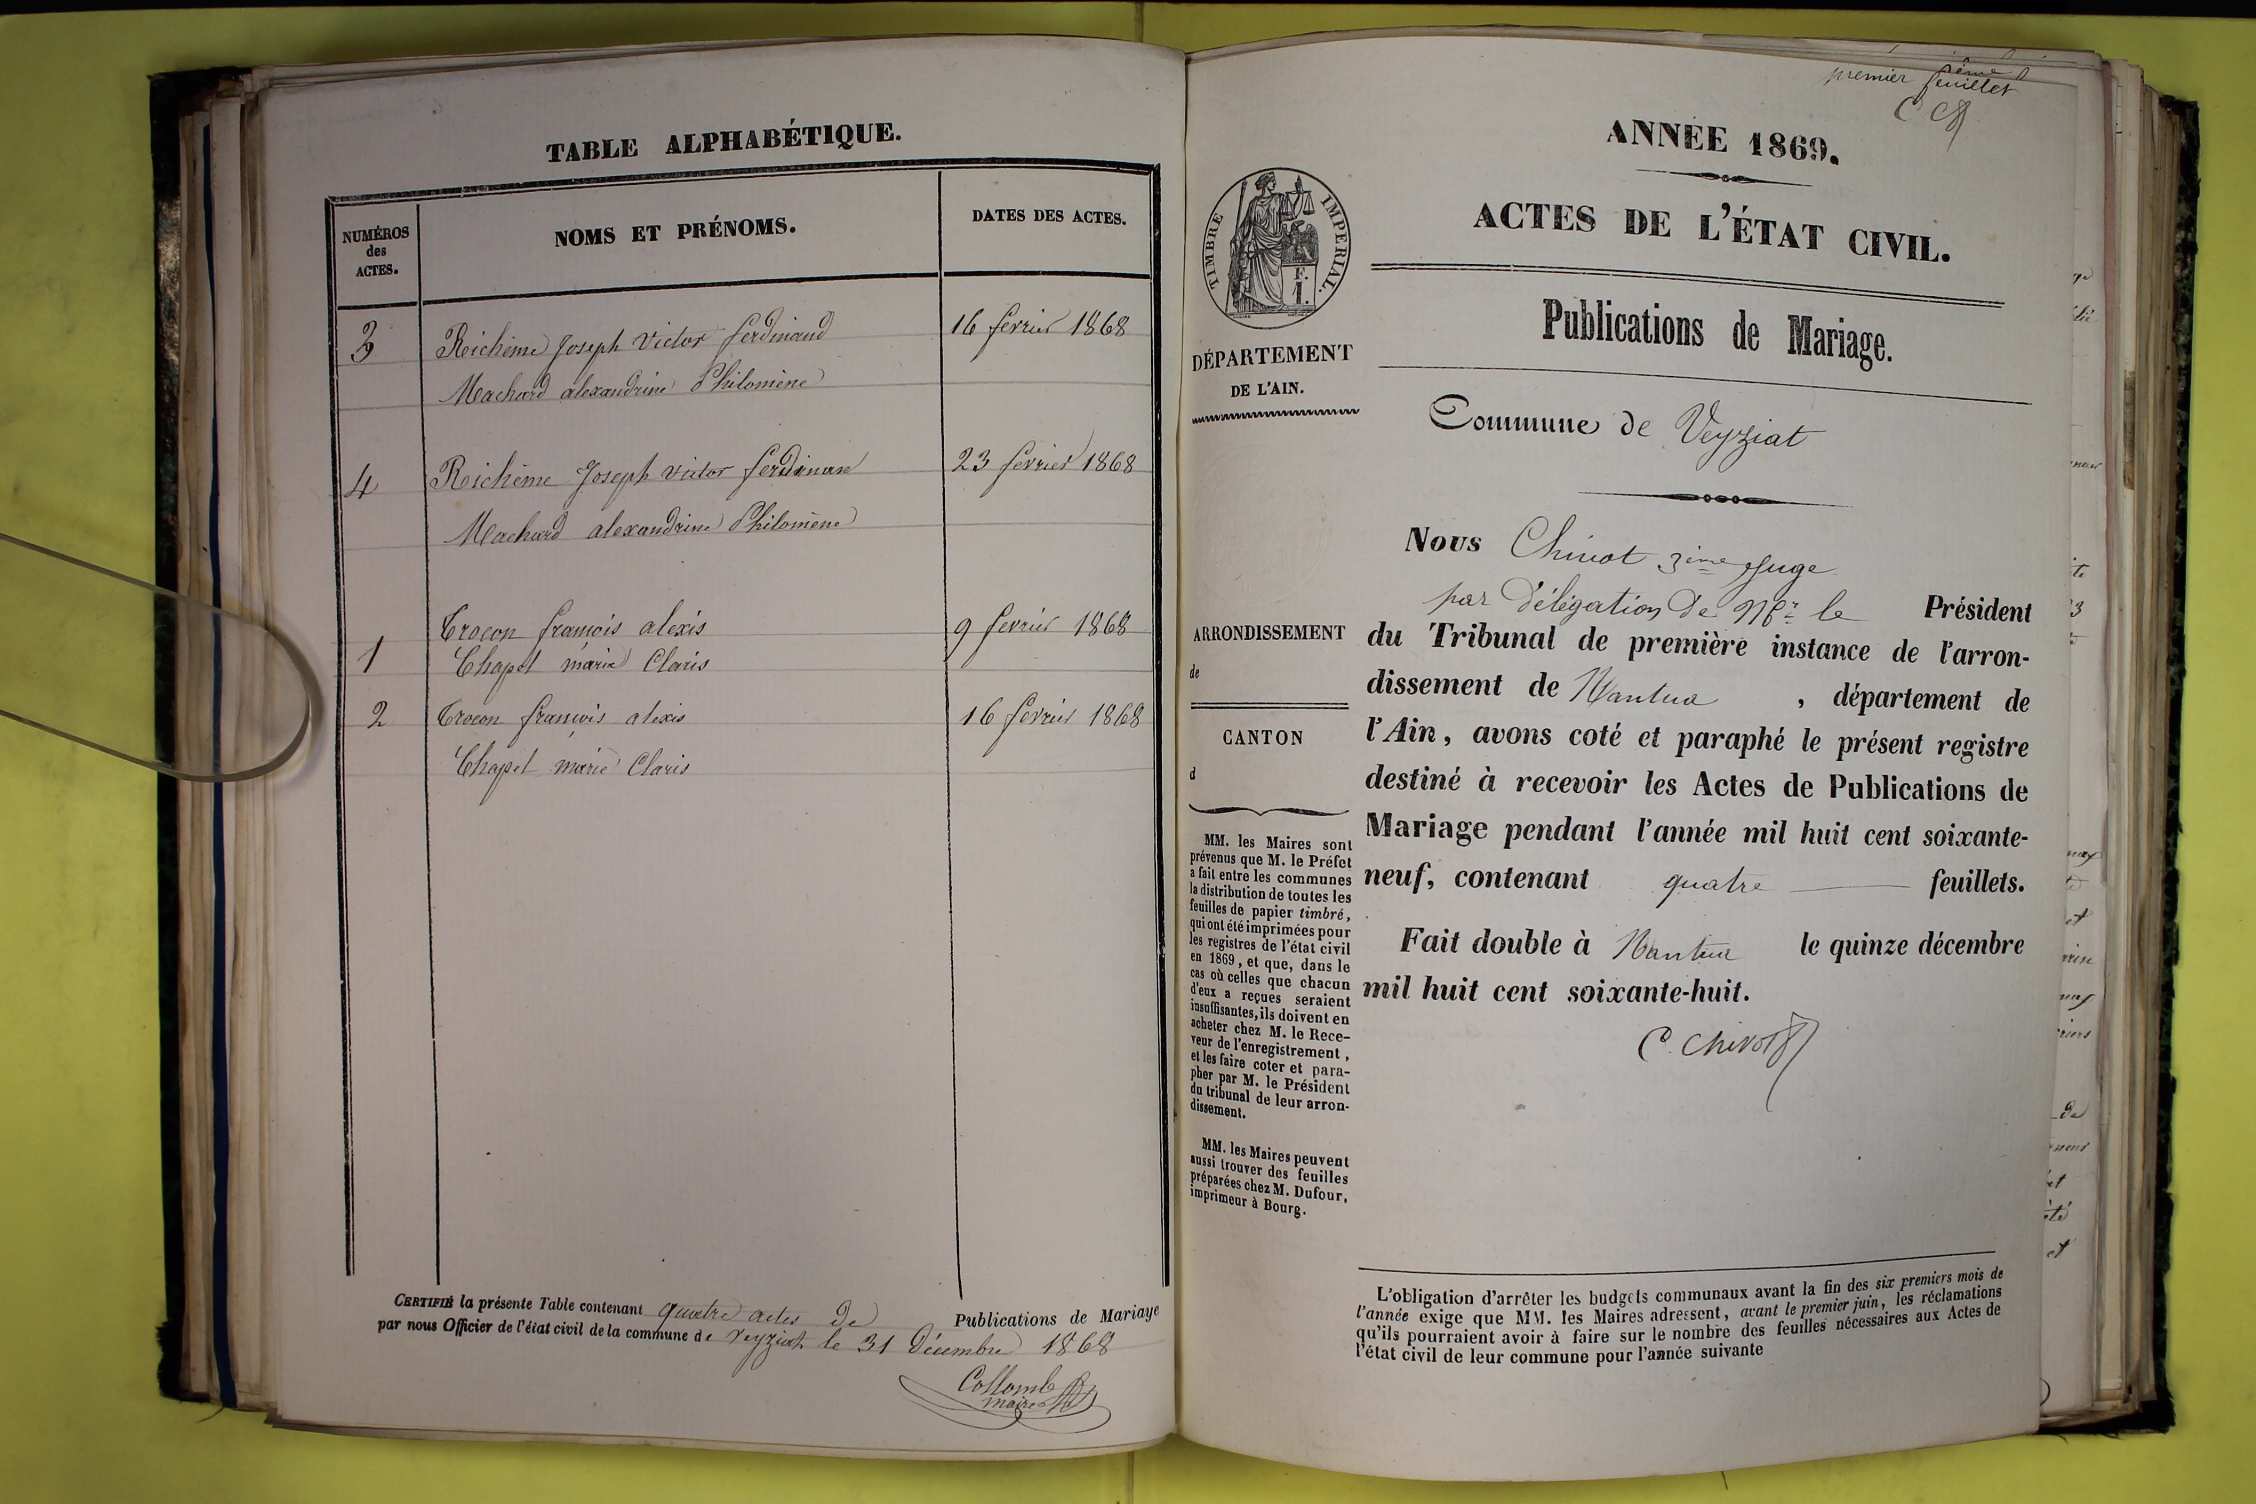 TABLE ALPHABÉTIQUE.
NUMÉROS
des
ACTES.
NOMS ET PRÉNOMS.
DATES DES ACTES.
3 Reichème Joseph Victor ferdinand 16 fevrier 1868
Machard alexandrine Philomène
4 Reichème Joseph victor ferdinan 23 fevrier 1868
Machard alexandrine Philomène
1 Crocon françois alexis 9 fevrier 1868
Chapel marie Claris
2 Crocon françois alexis 16 fevrier 1868
Chapel marie Claris
CERTIFIÉ la présente Table contenant quatre actes de Publications de Mariage
par nous Officier de l'état civil de la commune de veyziat le 31 Décembre 1868
Collomb
maire
premier feuillet
ANNÉE 1869.
ACTES DE L'ÉTAT CIVIL.
TIMBRE IMPERIAL.
Publications de Mariage.
DÉPARTEMENT
DE L'AIN.
Commune de Veyziat
Nous Chivot 3ème Juge
par délégation de Mr le Président
du Tribunal de première instance de l'arron-
dissement de Nantua, département de
l'Ain, avons coté et paraphé le présent registre
destiné à recevoir les Actes de Publications de
Mariage pendant l'année mil huit cent soixante-
neuf, contenant quatre feuillets.
Fait double à Nantua le quinze décembre
mil huit cent soixante-huit.
C. Chivot
ARRONDISSEMENT
de
CANTON
d
MM. les Maires sont
prévenus que M. le Préfet
a fait entre les communes
la distribution de toutes les
feuilles de papier timbré,
qui ont été imprimées pour
les registres de l'état civil
en 1869, et que, dans le
cas où celles que chacun
d'eux a reçues seraient
insuffisantes, ils doivent en
acheter chez M. le Rece-
veur de l'enregistrement,
et les faire coter et para-
pher par M. le Président
du tribunal de leur arron-
dissement.
MM. les Maires peuvent
aussi trouver des feuilles
préparées chez M. Dufour,
imprimeur à Bourg.
L'obligation d'arrêter les budgets communaux avant la fin des six premiers mois de
l'année exige que MM. les Maires adressent, avant le premier juin, les réclamations
qu'ils pourraient avoir à faire sur le nombre des feuilles nécessaires aux Actes de
l'état civil de leur commune pour l'année suivante